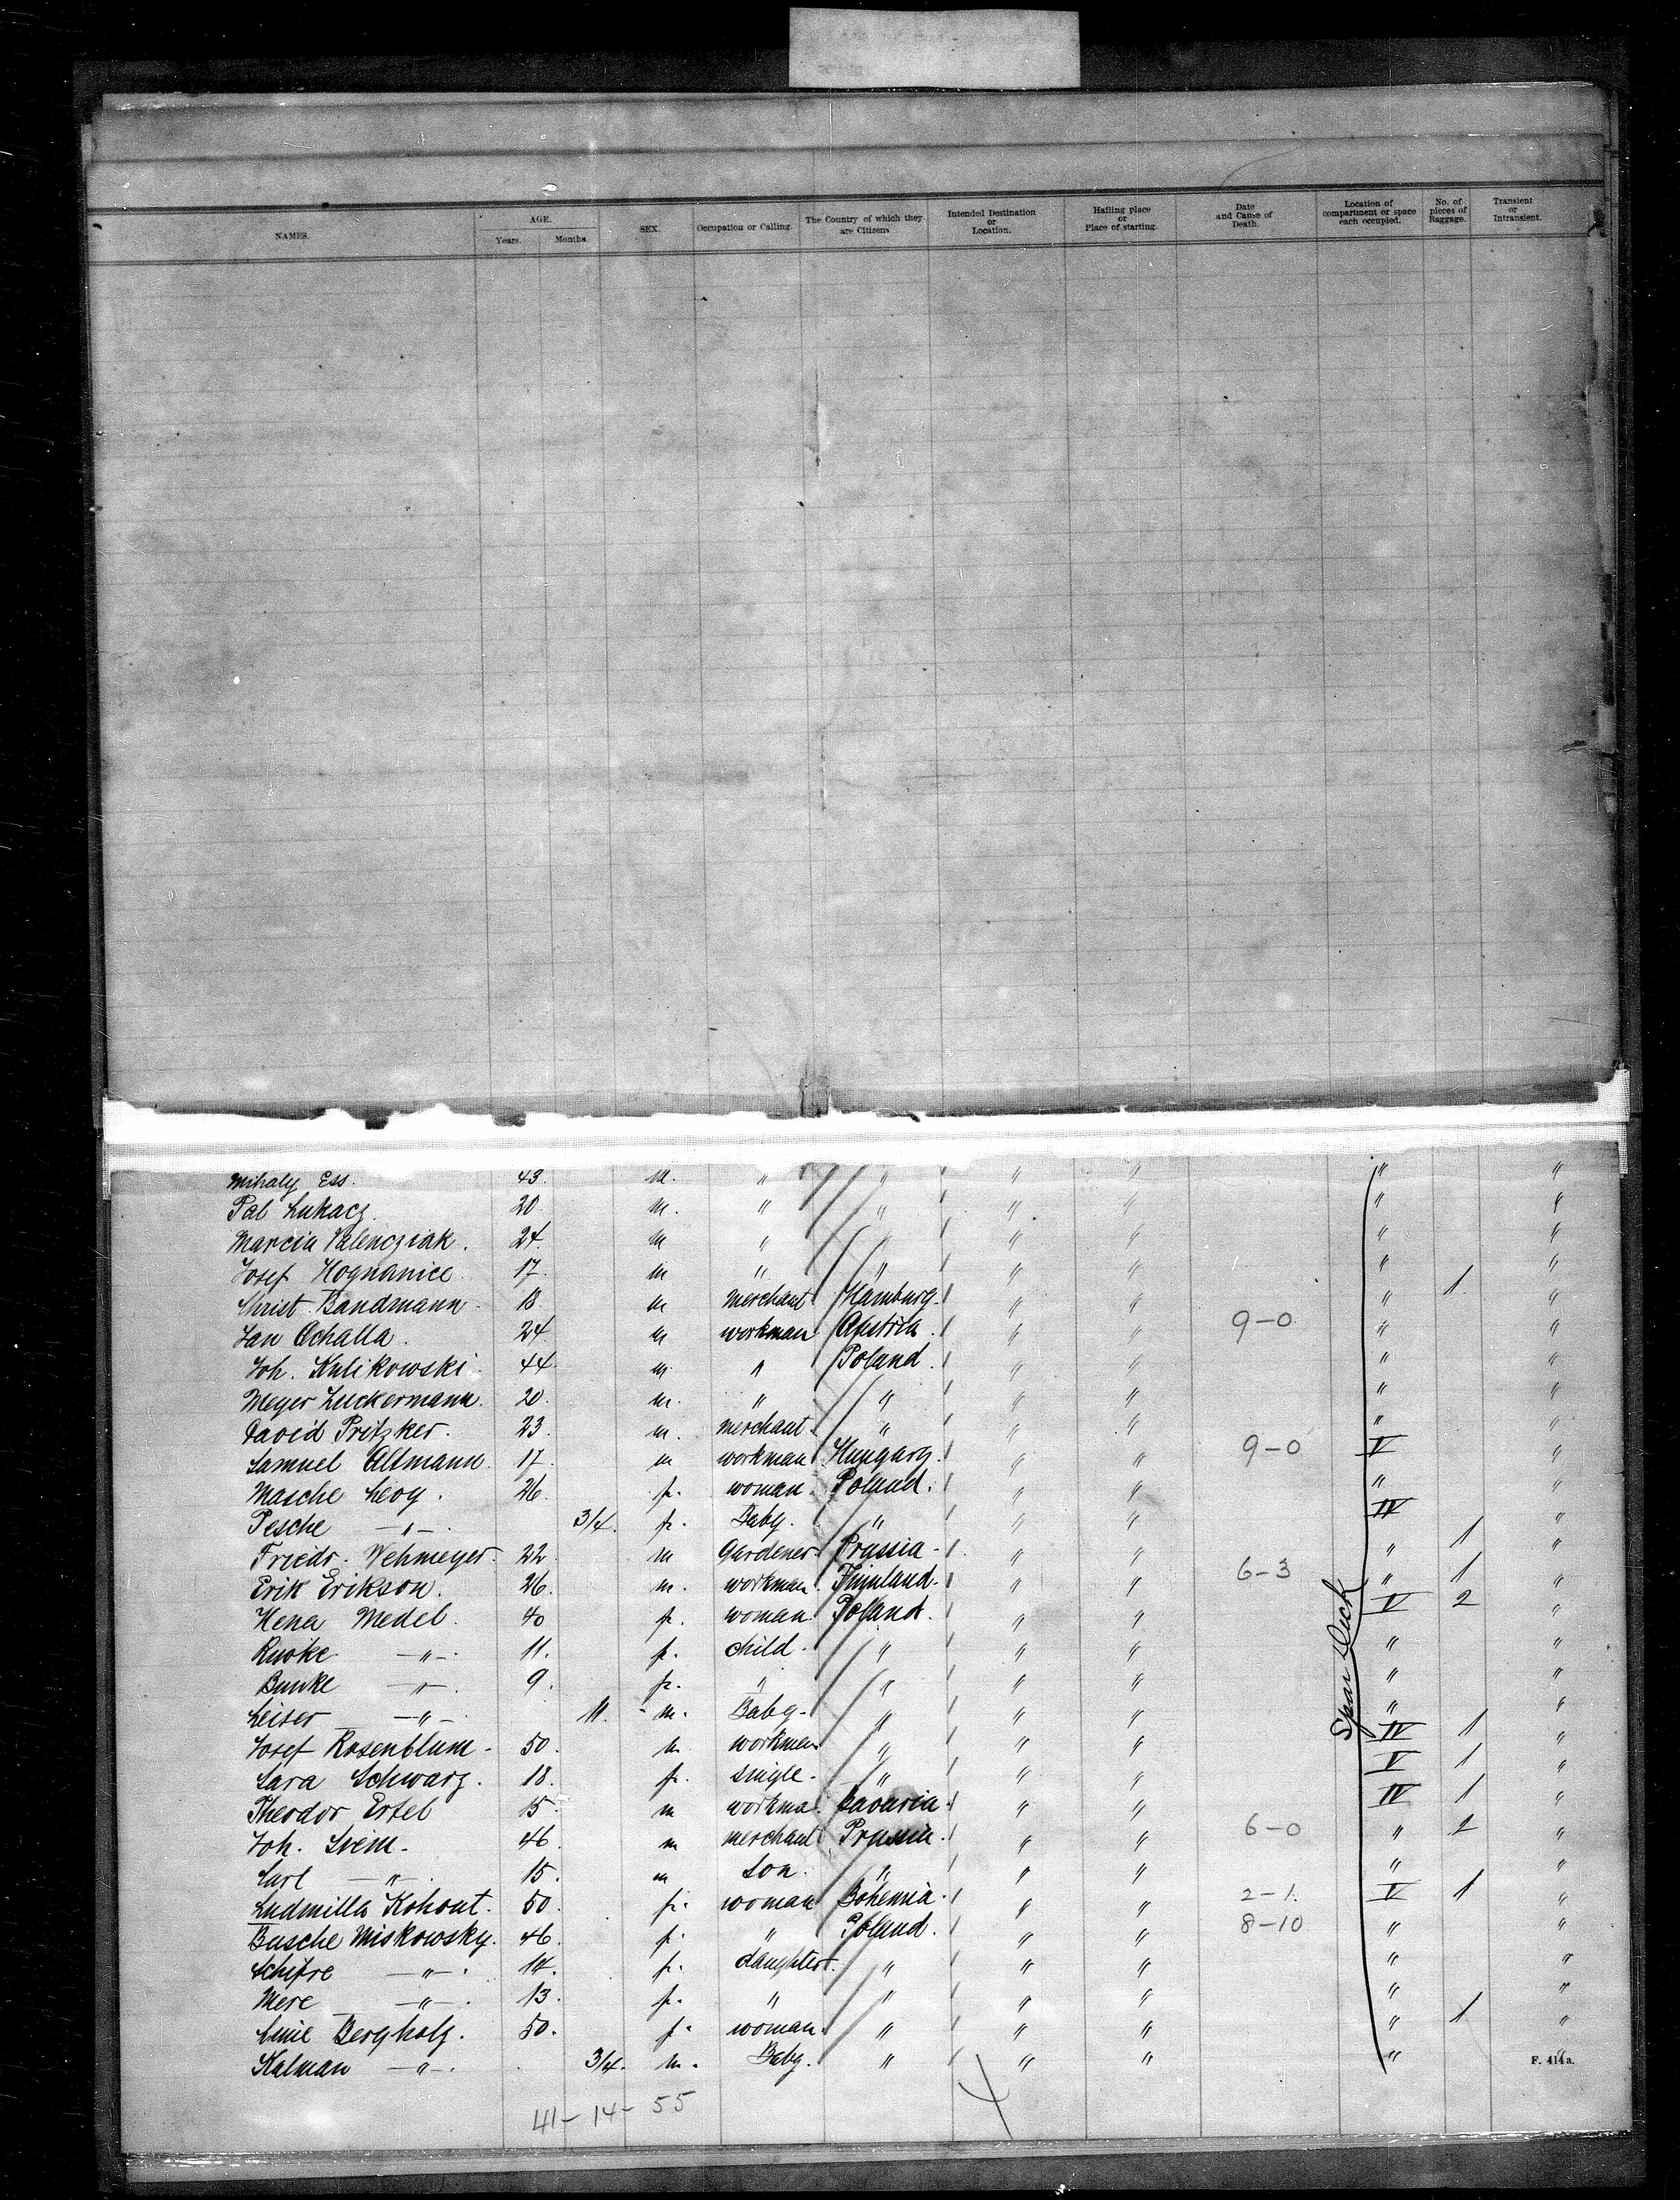 NAMES. AGE. Years. Months. SEX. Occupation or Calling. The Country of which they are Citizens Intended Destination or Location. Hailing place or Place of starting. Date and Cause of Death. Location of compartment or space each occupied. No. of pieces of Baggage. Transient or Intransient.
Mihaly Ess. 43. m. " " " " " "
Pal Lukacz 20 m. " " " " " "
Marcin Valencziak. 24. m " " " " " "
Josef Hognanice 17. m " " " " " "
Christ. Bandmann 18 m merchant Hamburg " " " 1 "
Jan Ochalla. 24 m workman Austria. " " 9-0 " "
Joh. Kulikowski 44 m " Poland. " " " "
Meyer Zuckermann. 20. m. " " " " " "
David Pritzker. 23. m. merchant " " " " "
Samuel Altmann. 17. m workman Hungary. " " 9-0 V "
Masche Levy. 26. f. woman. Poland. " " " "
Pesche —"— 3/4. f. Baby. " " " IV "
Friedr. Wehmeyer. 22 m Gardener Prussia " " " 1 "
Erik Erikson. 26. m. workman. Finnland. " " 6-3 " 1 "
Hena Medel. 40 f. woman Poland. " " V 2 "
Rwoke —"— 11. f. child. " " " " "
Bunke —"— 9. f. " " " " " "
Leiser —"— 11. m. Baby. " " " " "
Josef Rosenblum. 50. m. workman " " " IV 1 "
Sara Schwarz. 18. f. single. " " " V 1 "
Theodor Ertel 15. m workma. Bavaria. " " IV 1 "
Joh. 46. m merchant Prussia. " " 6-0 " 2 "
Carl —"— 15. m Son. " " " " "
Ludmilla Kohout. 50. f. woman Bohemia. " " 2-1. V 1 "
Busche Miskowsky. 46. f. " Poland. " " 8-10 " "
Schifre —"— 14. f. daughter. " " " " "
Mere —"— 13. f. " " " " " "
Bergholz. 50. f. woman. " " " " 1 "
Kalman —"— 3/4. m. Baby. " " " " "
Spar Deck
F. 414a.
41-14-55